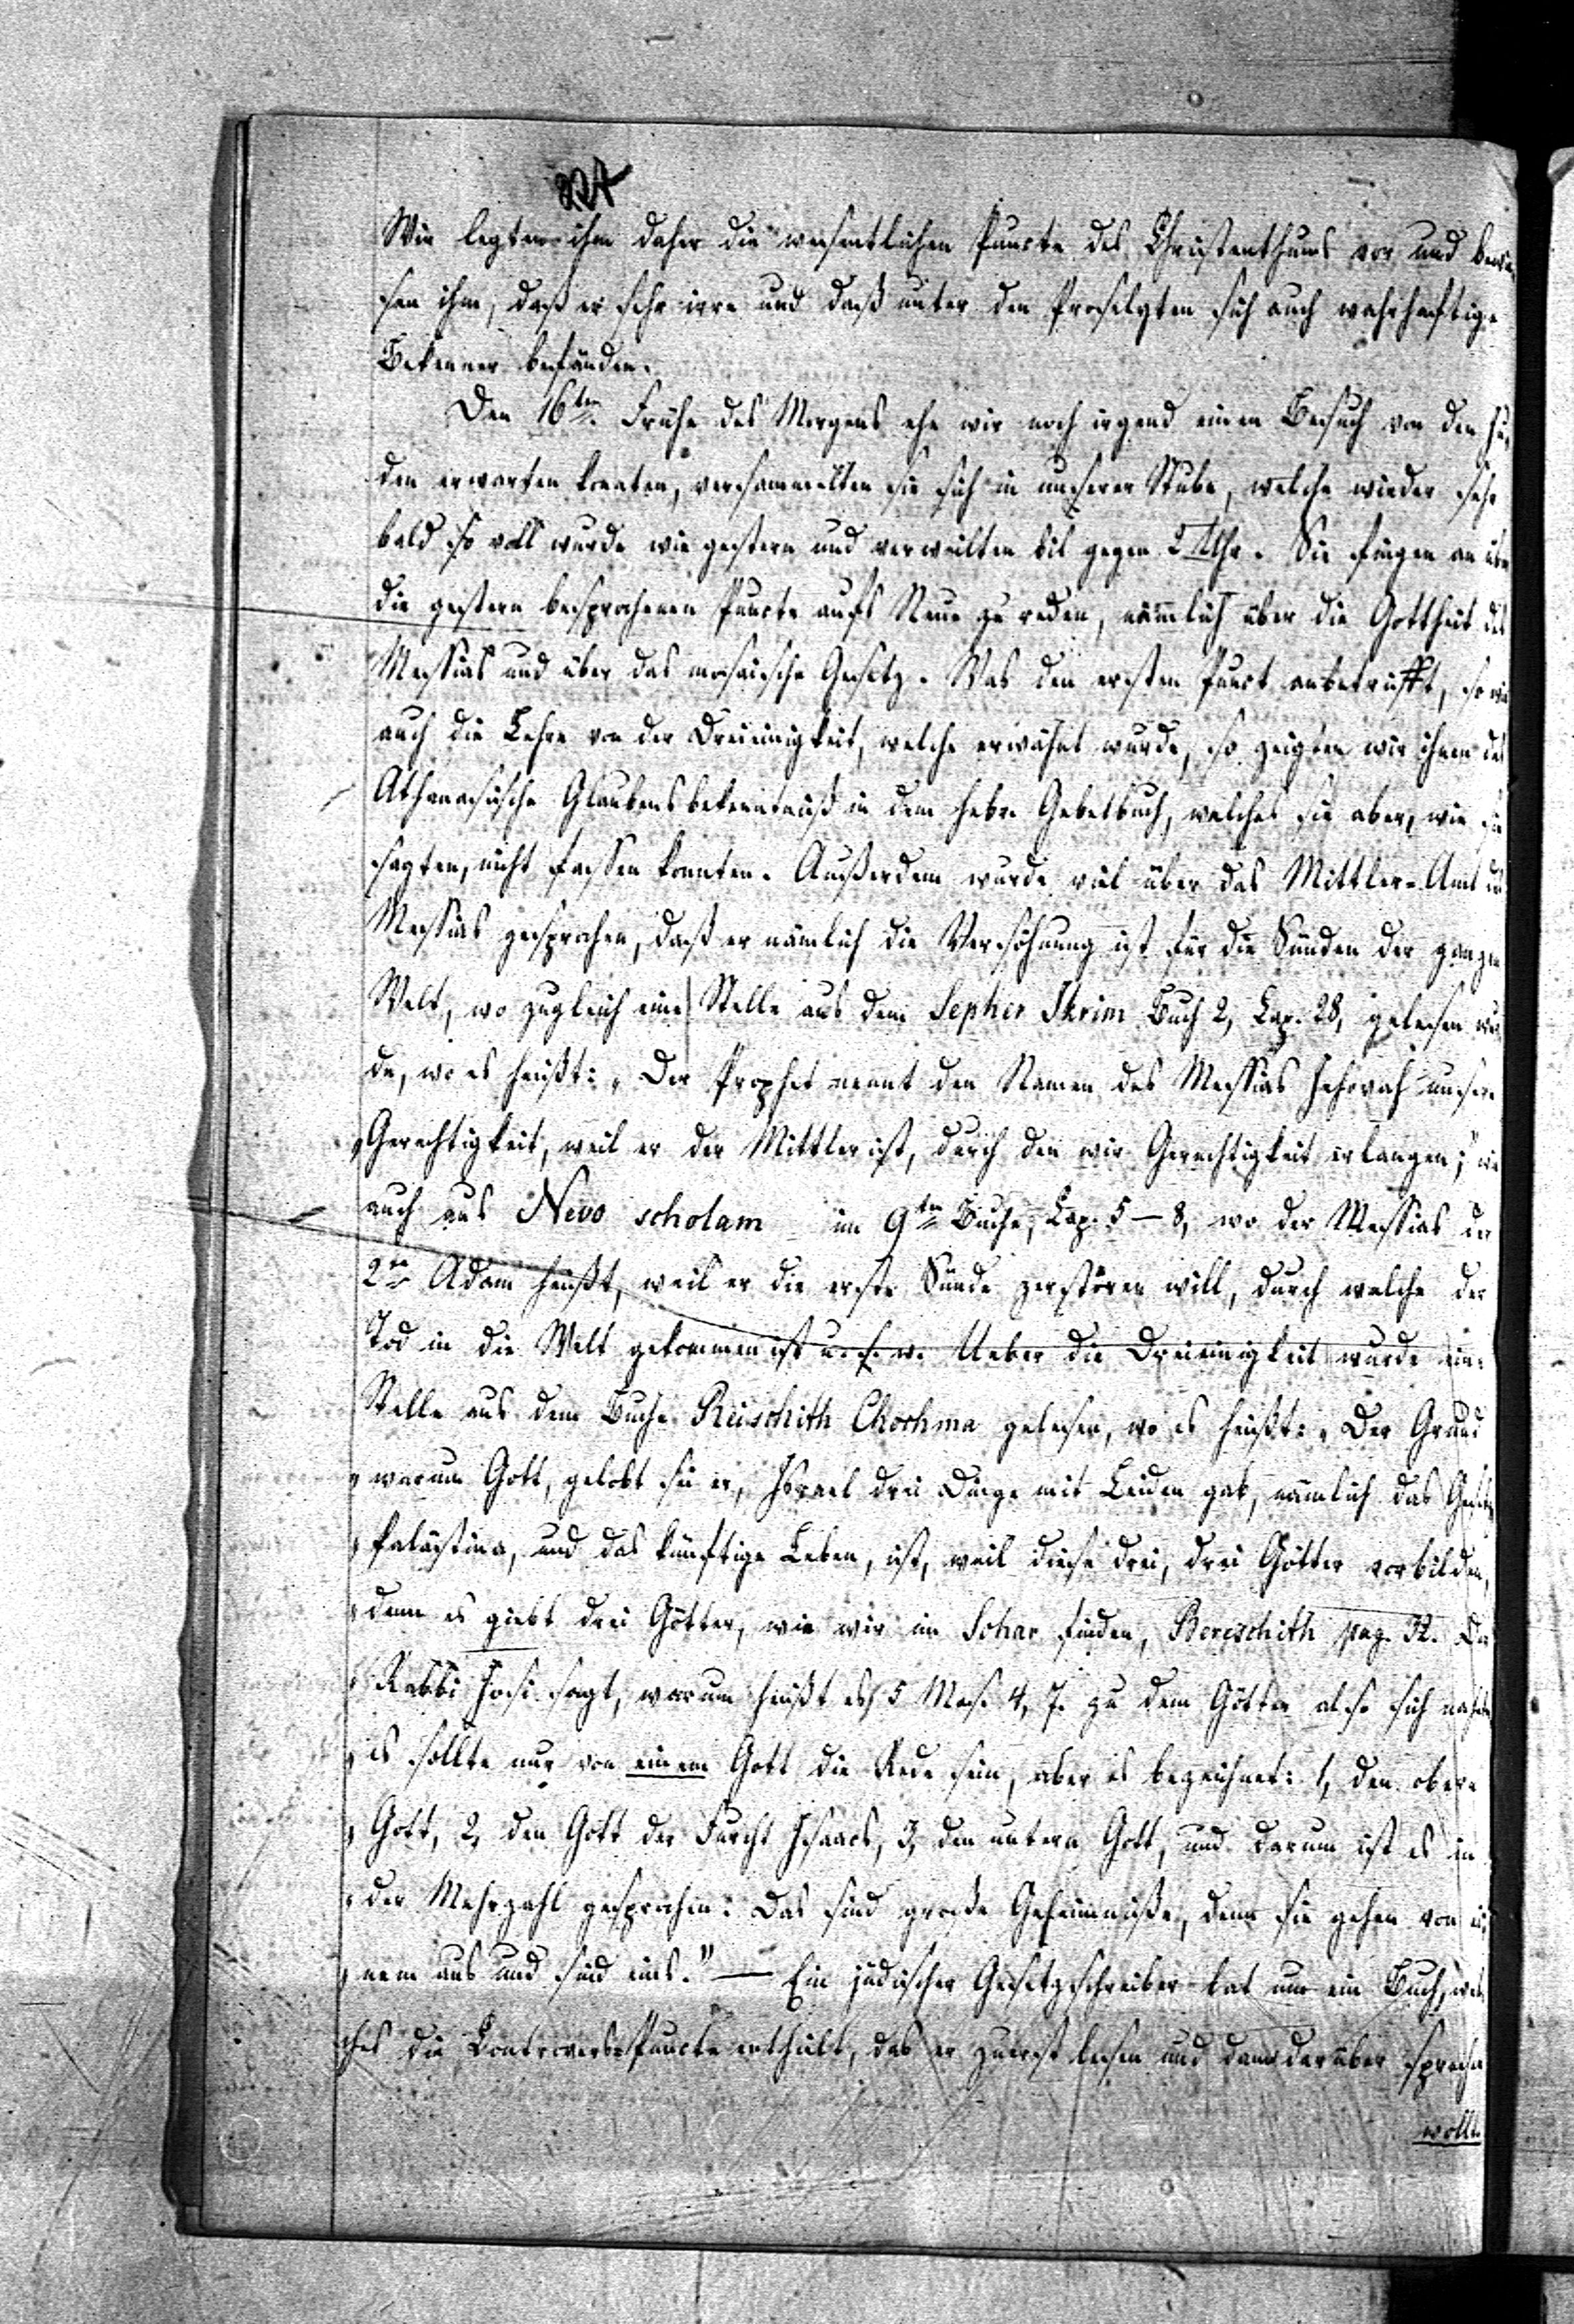 224
Wir legten ihm daher die wesentlichen Puncte des Christenthums vor und bewie-
sen ihm, daß er sehr irre und daß unter den Proselyten sich auch wahrhaftige
Bekenner befänden.
Den 16ten. Frühe des Morgens ehe wir noch irgend einen Besuch von den Ju-
den erwarten konnten, versammelten sie sich in unserer Stube, welche wieder sehr
bald so voll wurde wie gestern und verweilten bis gegen Uhr. Sie fingen an über
die gestern besprochenen Puncte aufs Neue zu reden, nämlich über die Gottheit des
Messias und über das mosaische Gesetz. Was den ersten Punct anbetrifft, so wie
auch die Lehre von der Dreieinigkeit, welche erwähnt wurde, so zeigten wir ihnen das
Athanasische Glaubensbekenntniß in dem hebr. Gebetbuch, welches sie aber, wie sie
sagten, nicht fassen konnten. Außerdem wurde viel über das Mittler-Amt des
Messias gesprochen, daß er nämlich die Versöhnung ist für die Sünden der ganzen
Welt, wo zugleich eine Stelle aus dem Sepher Ikrim Buch 2, Cap. 28, gelesen wur-
de, wo es heißt: „Der Prophet nennt den Namen des Messias Jehovah unsere
„Gerechtigkeit, weil er der Mittler ist, durch den wir Gerechtigkeit erlangen;" wie
auch aus Nevo scholam im 9ten Buche, Cap. 5–8, wo der Messias der
2te Adam heißt, weil er die erste Sünde zerstören will, durch welche der
Tod in die Welt gekommen ist u. s. w. Ueber die Dreieinigkeit wurde eine
Stelle aus dem Buche Reischith Chochma gelesen, wo es heißt: „Der Grund
„warum Gott, gelobt sei er, Israel drei Dinge mit Leiden gab, nämlich das Gesetz,
„Palästina, und das künftige Leben, ist, weil diese drei, drei Götter vorbilden,
„denn es giebt drei Götter, wie wir im Sohar finden, Bereschith pag. 32. Da
„Rabbi Josi sagt, warum heißt es 5 Mos. 4, 7. zu dem Götter also sich nahen
„es sollte nur von einem Gott die Rede sein, aber es bezeichnet: 1, den obern
„Gott, 2, den Gott der Furcht Isaacs, 3, den untern Gott, und darum ist es in
„der Mehrzahl gesprochen: Das sind große Geheimnisse, denn sie gehen von ei-
„nem aus und sind eins." — Ein jüdischer Gesetzschreiber bat um ein Buch, wel-
ches die Controvers-Puncte enthielt, das er zuerst lesen und dann darüber sprechen
wollte